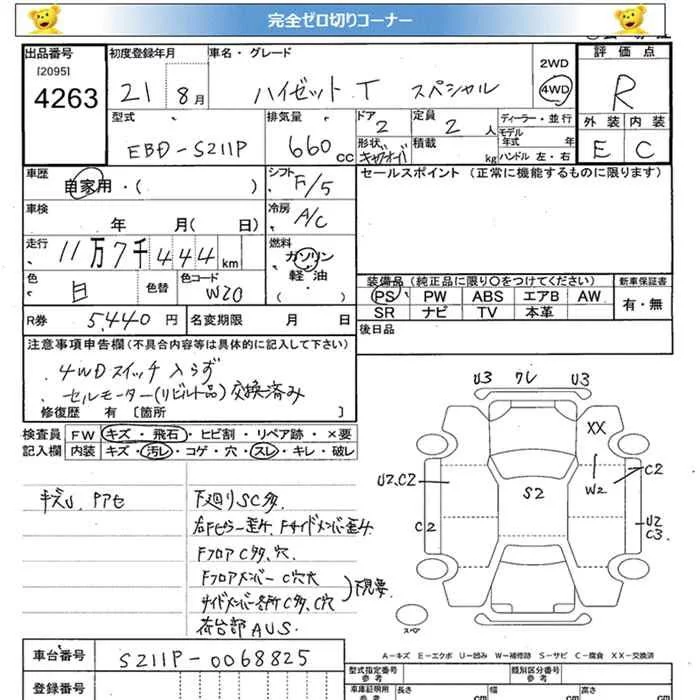 完全ゼロ切りコーナー
出品番号 [2095] 4263
初度登録年月 21 8月
車名・グレード ハイゼット T スペシャル
2WD 4WD
評価点 R
外装 E 内装 C
型式 EBD-S211P
排気量 660cc
ドア 2 形状
定員 2人 積載 kg
ディーラー・並行
モデル年式 年
ハンドル 左・右
車歴 自家用・( )
シフト F/5
セールスポイント (正常に機能するものに限ります)
車検 年 月( 日)
冷房 A/C
走行 11万7千444km
燃料 ガソリン 軽油 ( ・ )
色 白 色替 色コード W20
装備品(純正品に限り〇をつけてください) 新車保証書
PS PW ABS エアB AW 有・無
SR ナビ TV 本革
R券 5,440円 名変期限 月 日
後日品
注意事項申告欄(不具合内容等は具体的に記入して下さい)
.4WDスイッチ入らず
.セルモーター(リビルト品)交換済み
修復歴 有 〔箇所 〕
検査員 FW キズ・飛石・ヒビ割・リペア跡・×要
記入欄 内装 キズ・汚レ・コゲ・穴・スレ・キレ・破レ
キズU、アアセ
下廻りSC多
右Fピラー歪ミ、Fサイドメンバー歪ミ
FフロアC多、穴
FフロアメンバーC穴大
サイドメンバー各所C多、C穴
下見要
荷台部AUS.
U3 ワレ U3
XX
U2,C2
S2
W2
C2
C2
U2
C3
スペア
A-キズ E-エクボ U-凹み W-補修跡 S-サビ C-腐食 XX-交換済
車台番号 S211P-0068825
型式指定番号 類別区分番号
登録番号
車庫証明用参考 長さ cm 幅 cm 高さ cm